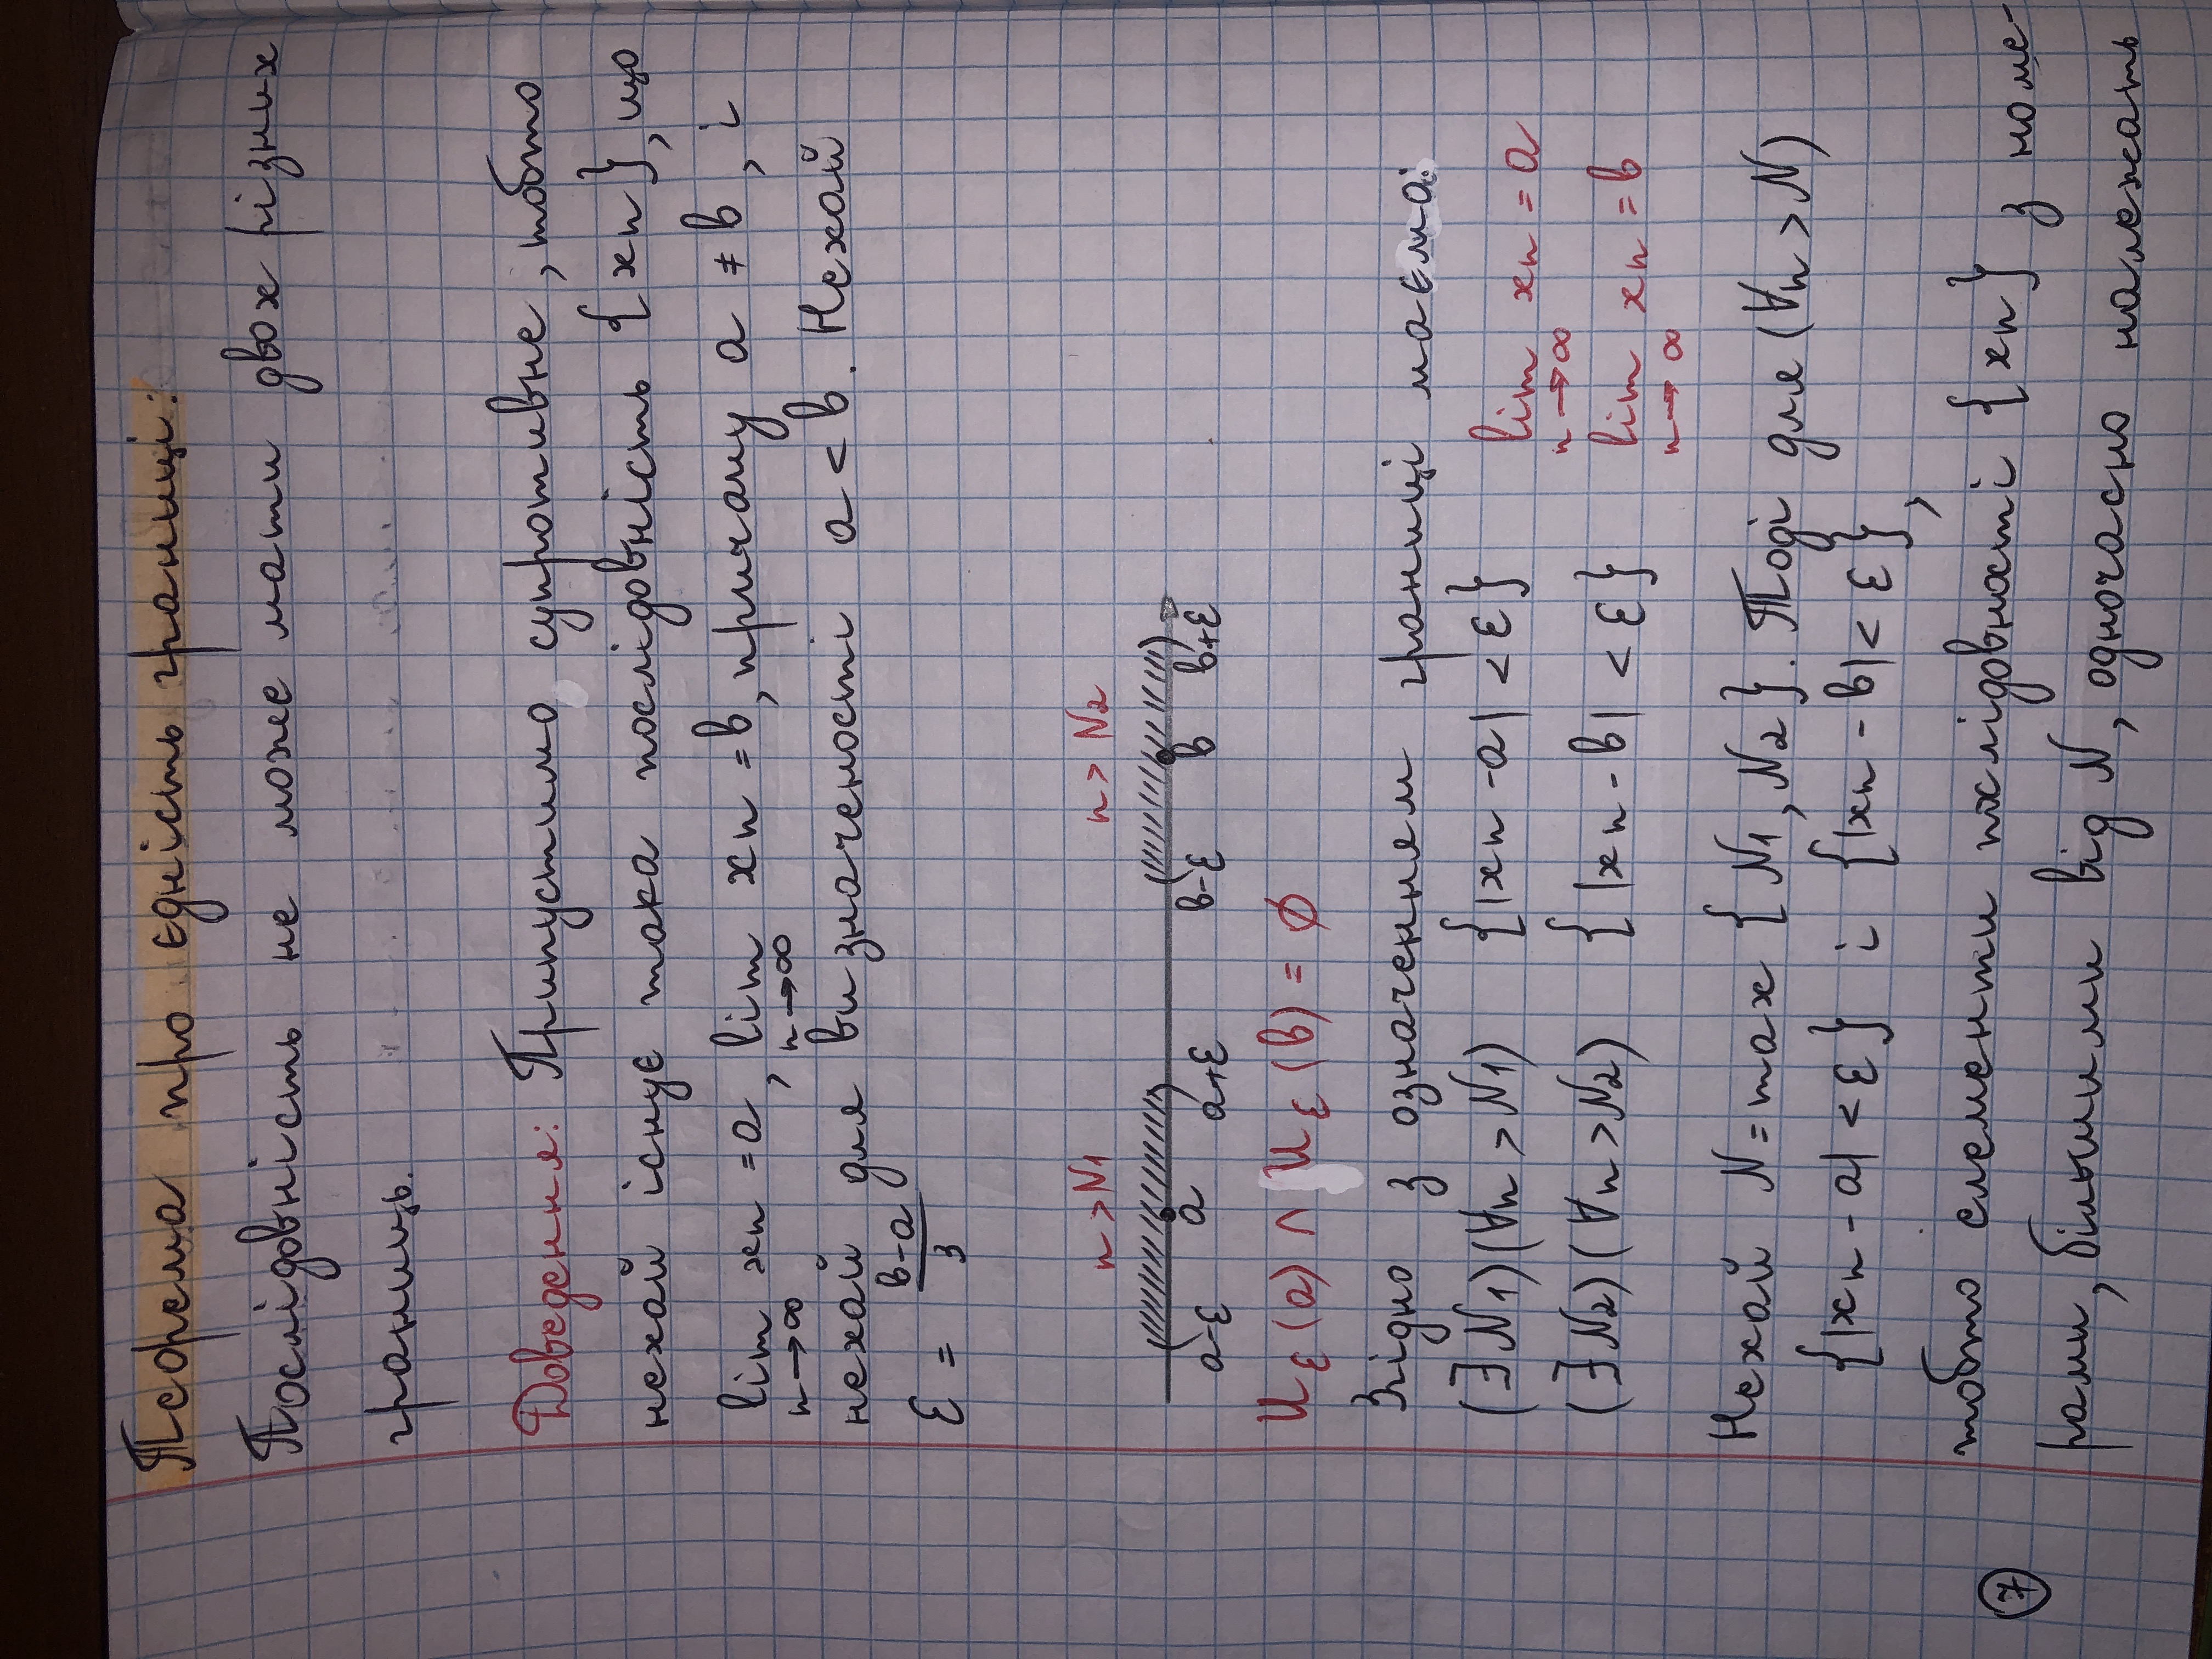 Теорема про єдність границі:
Послідовність не може мати двох різних
границь.
Доведення: Припустимо супротивне, тобто
нехай існує така послідовність {xn}, що
lim xn = a, lim xn = b, причому a ≠ b, і
n→∞ n→∞
нехай для визначеності a < b. Нехай
ε = (b-a)/3
n > N1 n > N2
a-ε a a+ε b-ε b b+ε
Uε(a) ∩ Uε(b) = ∅
Згідно з означенням границі маємо:
(∃N1)(∀n > N1) {|xn - a| < ε} lim xn = a
n→∞
(∃N2)(∀n > N2) {|xn - b| < ε} lim xn = b
n→∞
Нехай N = max {N1, N2}. Тоді для (∀n > N)
{|xn - a| < ε} і {|xn - b| < ε},
тобто елементи послідовності {xn} з номе-
рами, більшими від N, одночасно належать
7